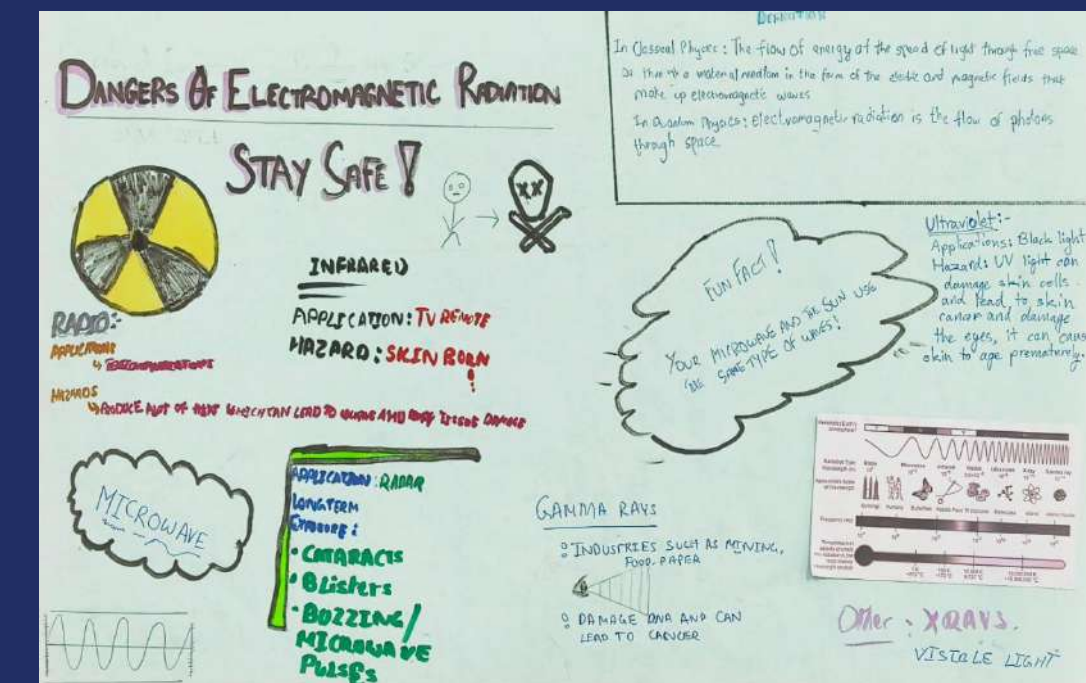 DANGERS OF ELECTROMAGNETIC RADIATION
STAY SAFE!
DEFINITION
In Classical Physics: The flow of energy at the speed of light through free space
or through a material medium in the form of the electric and magnetic fields that
make up electromagnetic waves
In Quantum Physics: electromagnetic radiation is the flow of photons
through space
RADIO:-
APPLICATIONS
HAZARDS
PRODUCE ALOT OF HEAT WHICH CAN LEAD TO BURNS AND BODY TISSUE DAMAGE
INFRARED
APPLICATION: TV REMOTE
HAZARD: SKIN BURN
FUN FACT!
YOUR MICROWAVE AND THE SUN USE
THE SAME TYPE OF WAVES!
Ultraviolet:-
Applications: Black light
Hazard: UV light can
damage skin cells
and lead to skin
cancer and damage
the eyes, it can caus
skin to age prematurely.
MICROWAVE
APPLICATION: RADAR
LONGTERM
EXPOSURE:
• CATARACTS
• Blisters
• BUZZING/
MICROWAVE
PULSES
GAMMA RAYS
INDUSTRIES SUCH AS MINING,
FOOD, PAPER
DAMAGE DNA AND CAN
LEAD TO CANCER
Other: XRAYS.
VISIBLE LIGHT